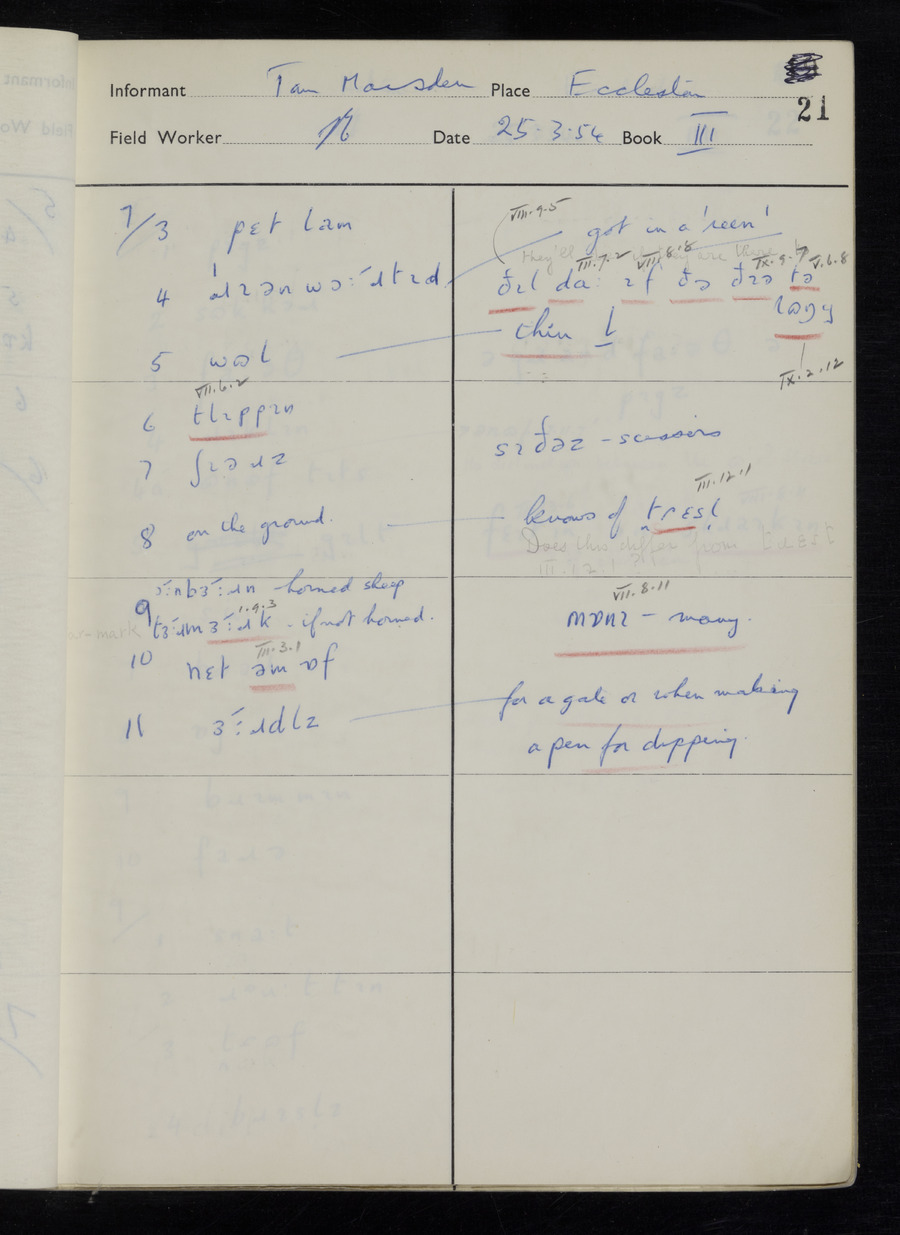 21
Informant Tom Marsden Place Eccleston
Field Worker Date 25·3·54 Book III
7/3 pɛt lam
VIII·9·5
got in a 'reen'
they'll
III·7·2 VIII·8·8 IX·9·7 V·6·8
4
ðɛl da: ɪf ðə ðɪə tə
thin l
5 wəl
IX·2·12
VII·6·2
6 tlɪppɪn
sɪðəz – scissors
7 ʃɪəɹz
III·12·1
8 on the ground.
knows of tresl
Does this differ from
III.12.1 ?
9 – horned sheep
VII·8·11
1·9·3
ear-mark tɜ:ɹm ɜ:ɹk – if not horned.
mɒnɪ – many.
III·3·1
10 nɛt əm ɒf
for a gate or when making
11 ɜ:ɹdlz
a pen for dipping.